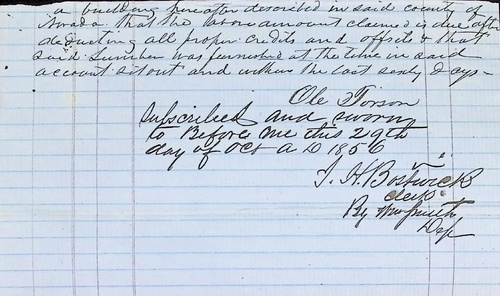 a building hereafter described in said county of
that the above amount claimed is due after
deducting all proper credits and offsets & that
said Lumber was furnished at the time in said
account set out and within the last sixty days –
Ole
Subscribed and sworn
to Before me this 29th
day of Oct A D 1856
J. H. Bostwick
clerk
By
Dep